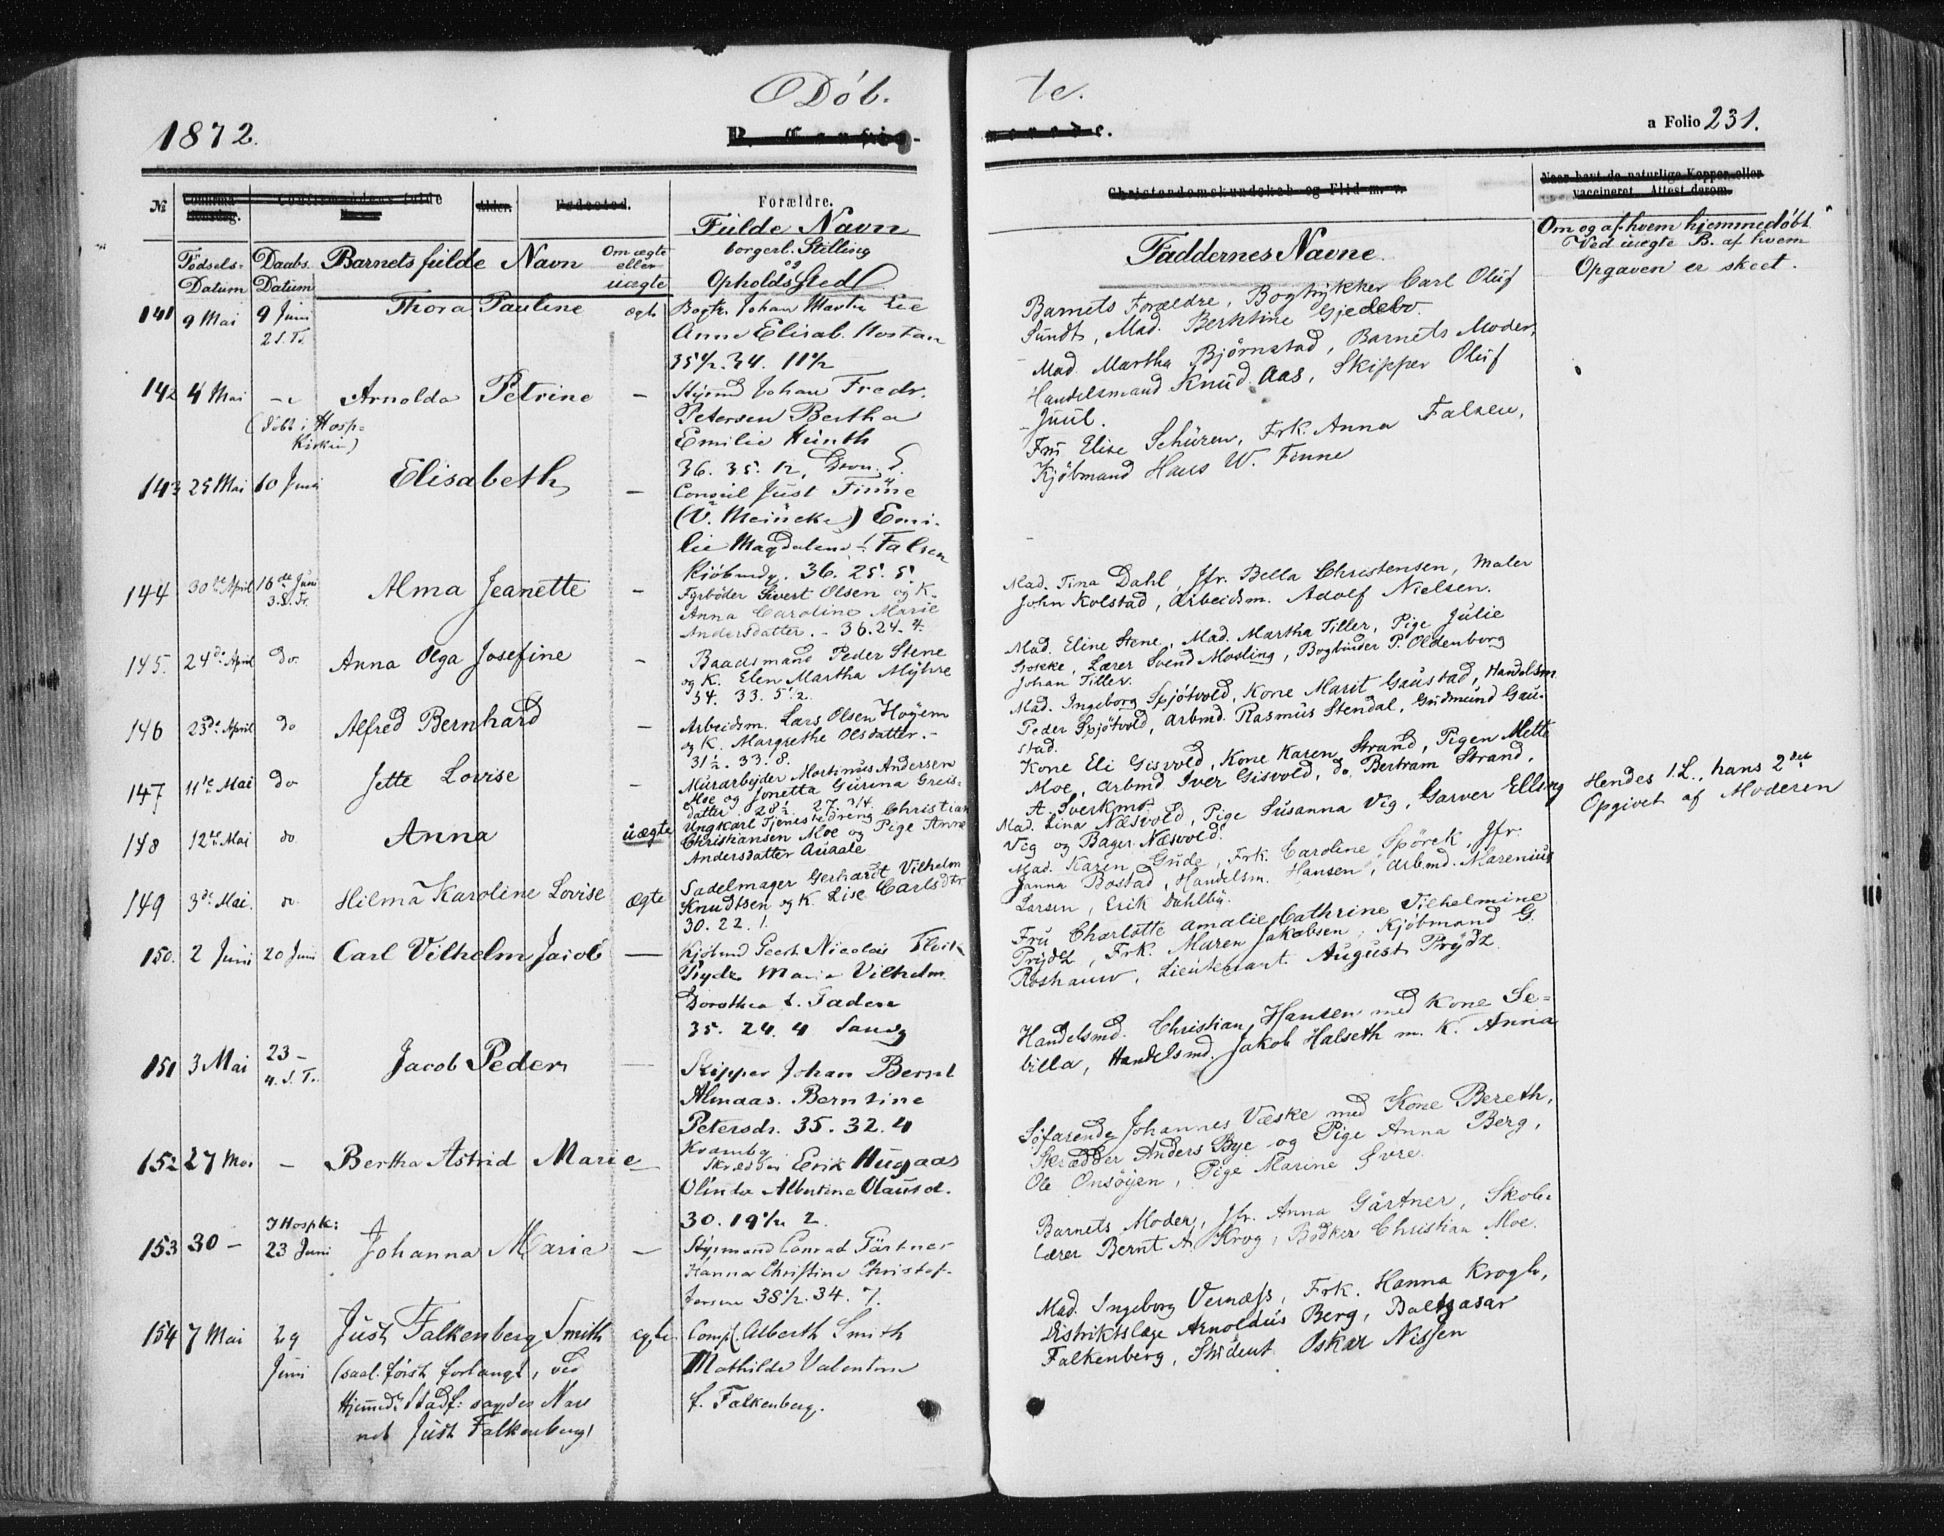 Döb. te.
1872.
a Folio 231.
№ Forældre.
Fulde Navn
borgerl. Stilling
og
Opholdssted
Födsels-Datum Daabs Datum Barnets fulde Navn Om ægte eller uægte
Faddernes Navne
Om og af hvem hjemmedöbt
Ved uægte B. af hvem
Opgaven er skeet.
141 9 Mai 9 Juni 2 S. Tr. Thora Pauline ægte
Bogtr. Johan Martin Lie
Anne Elisab. Mostan
35 1/2. 34. 11 1/2
Barnets Forældre, Bogtrykker Carl Oluf
Sundt, Mad. Berntine Gjedebo.
142 4 Mai (döbt i Hosp-Kirken) Arnolda Petrine –
Styrmd Johan Fredr.
Petersen Bertha
Emilie Münth
36. 35. 12,
Mad. Martha Björnstad, Barnets Moder,
Handelsmand Knud Aas, Skipper Oluf
Juul.
143 25 Mai 10 Juni Elisabeth –
Consul Just Finne
(V. Meincke) Emi-
lie Magdalena f. Falsen
Kjöbmdg. 36. 25. 5.
Fru Elise Schüren, Frk. Anna Falsen,
Kjöbmand Hans W. Finne
144 30te April 16de Juni 3. S. Tr. Alma Jeanette –
Fyrböder Sivert Olsen og K.
Anna Caroline Marie
Andersdatter. – 36. 24. 4.
Mad. Tina Dahl, Jfr. Bella Christensen, Maler
John Kolstad, Arbeidsm. Adolf Nielsen.
145. 24de April do. Anna Olga Josefine –
Baadsmand Peder Stene
og K. Elen Martha Myhre
34. 33. 5 1/2.
Mad. Eline Stene, Mad. Martha Tiller, Pige Julie
Lærer Svend Mosling, Bogbinder P. Oldenborg
Johan Tiller.
146 23de April do Alfred Bernhard –
Arbeidsm. Lars Olsen Höyem
og K. Margrethe Olsdatter. –
31 1/2. 33. 8.
Mad. Ingeborg Spjötvold, Kone Marit Gaustad, Handelsm
Peder Spjötvold, Arbmd. Rasmus Stendal, Gudmund Gau-
stad.
147 11te Mai do Jette Lovise –
Murarbejder Mortinus Andersen
Moe og Jonetta Gurina Greis-
datter. 28 1/2. 27. 3/4.
Kone Eli Gisvold, Kone Karen Strand, Pigen Mette
Moe, Arbmd Iver Gisvold, do. Bertram Strand,
A. Sverkmo.
148 12te Mai do Anna uægte
Ungkarl Tjenestedreng Christian
Christiansen Moe og Pige Anne
Andersdatter Auaale
Mad. Lina Næsvold, Pige Susanna Vig, Garver Elling
Vig og Bager Næsvold.
Hendes 1. L., hans 2den
Opgivet af Moderen
149 3de Mai. do Hilma Karoline Lovise Ægte
Sadelmager Gerhardt Vilhelm
Knudtsen og K. Lise Carlsdtr
30. 22. 1.
Mad. Karen Gude, Frk. Caroline Spörck, Jfr.
Janna Bostad, Handelsm. Hansen, Arbmd. Marenius
Larsen, Erik Dahlby.
150. 2 Juni 20 Juni Carl Vilhelm Jacob —
Kjöbmd Geert Nicolai Flock
Prydz Maria Vilhelm.
Dorothea f. Faden
35. 24. 4
Fru Charlotte Amalie Cathrine Vilhelmine
Prydz, Frk. Maren Jakobsen, Kjöbmand G.
Roshauw, Lieutenant August Prydz.
151 3 Mai 23 – 4. S. Tr. Jacob Peder —
Skipper Johan Bernt
Almaas. Berntine
Petersdr. 35. 32. 4
Handelsmd. Christian Hansen med Kone Se-
billa, Handelsmd. Jakob Halseth m. K. Anna
152 27 Mai – Bertha Astrid Marie –
Skrædder Erik Hugaas
Olinda Albertine Olausd.
30. 19 1/2 2.
Söfarende Johannes Væske med Kone Bereth,
Skrædder Anders Bye og Pige Anna Berg,
Ole Onsöjen, Pige Marine Svre.
153 30 – I Hospk: 23 Juni Johanna Marie –
Styrmand Conrad Gärtner
Hanna Christine Christof-
fersen 38 1/2. 34. 7.
Barnets Moder, Jfr. Anna Gärtner, Skole-
lærer Bernt A. Krog, Bödker Christian Moe.
154 7 Mai 29 Juni Just Falkenberg Smith egte
(saal. först forlangt, ved
Hjemmed. Stadf: sagdes Nav
net Just Falkenberg)
Compl. Alberth Smith
Mathilde Valentine
f. Falkenberg.
Mad. Ingeborg Vernæss, Frk. Hanna Krogh,
Distriktslæge Arnoldus Berg, Baltzasar
Falkenberg, Student Oskar Nissen